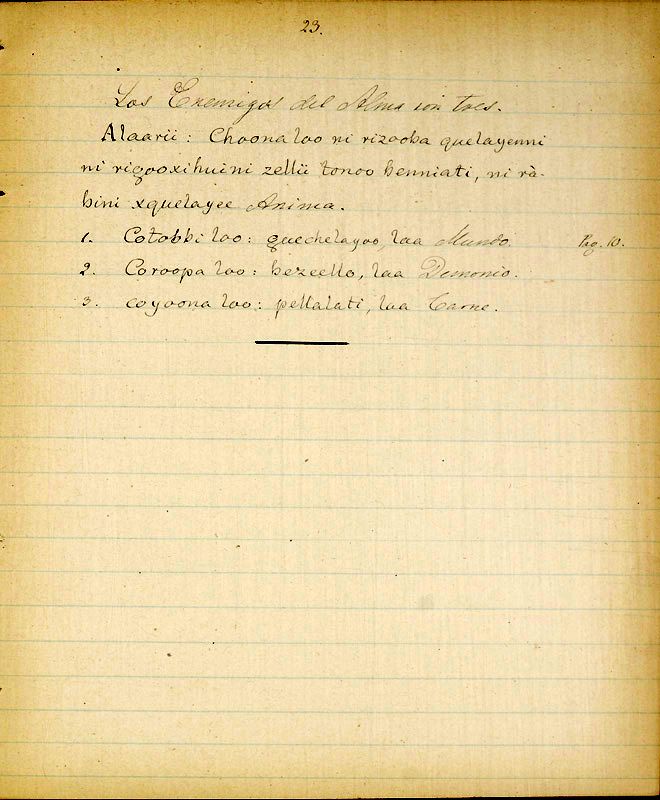 23.
Los Enemigos del Alma son tres.
Alaarii: Choona loo ni rizooba quelayenni
ni rigooxihuini zellii tonoo benniati, ni rà-
bini xquelayee Anima.
1. Cotobbi loo: quechelayoo, laa Mundo. Pag. 10.
2. Coroopa loo: bezeello, laa Demonio.
3. coyoona loo: pellalati, laa Carne.